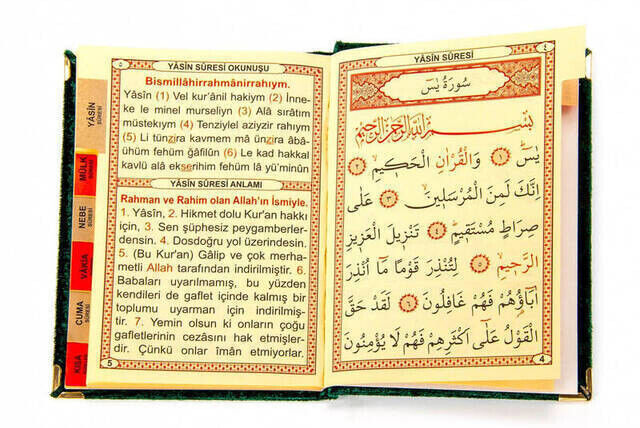 YÂSİN SÛRESİ OKUNUŞU
٥
Bismillâhirrahmânirrahıym.
Yâsîn (1) Vel kur'ânil hakiym (2) İnne-
ke le minel murseliyn (3) Alâ sırâtım
müstekıym (4) Tenziylel aziyzir rahıym
(5) Li tünzira kavmem mâ ünzira âbâ-
ühüm fehüm ğâfilûn (6) Le kad hakkal
kavlü alâ ekserihim fehüm lâ yü'minûn
YÂSİN SÛRESİ ANLAMI
Rahman ve Rahim olan Allah'ın İsmiyle.
1. Yâsîn, 2. Hikmet dolu Kur'an hakkı
için, 3. Sen şüphesiz peygamberler-
densin. 4. Dosdoğru yol üzerindesin.
5. (Bu Kur'an) Gâlip ve çok merha-
metli Allah tarafından indirilmiştir. 6.
Babaları uyarılmamış, bu yüzden
kendileri de gaflet içinde kalmış bir
toplumu uyarman için indirilmiş-
tir. 7. Yemin olsun ki onların çoğu
gafletlerinin cezasını hak etmişler-
dir. Çünkü onlar îmân etmiyorlar.
5
YÂSİN SÛRESİ
MÜLK SÛRESİ
NEBE SÛRESİ
VÂKIA
CUMA SÛRESİ
KISA
YÂSİN SÛRESİ
٤
سُورَةُ يٰسٓ
بِسْمِ اللّٰهِ الرَّحْمٰنِ الرَّحٖيمِ
يٰسٓ ﴿١﴾ وَالْقُرْاٰنِ الْحَكٖيمِ ﴿٢﴾
اِنَّكَ لَمِنَ الْمُرْسَلٖينَ ﴿٣﴾ عَلٰى
صِرَاطٍ مُسْتَقٖيمٍ ﴿٤﴾ تَنْزٖيلَ الْعَزٖيزِ
الرَّحٖيمِ ﴿٥﴾ لِتُنْذِرَ قَوْمًا مَٓا اُنْذِرَ
اٰبَٓاؤُ۬هُمْ فَهُمْ غَافِلُونَ ﴿٦﴾ لَقَدْ حَقَّ
الْقَوْلُ عَلٰٓى اَكْثَرِهِمْ فَهُمْ لَا يُؤْمِنُونَ
4